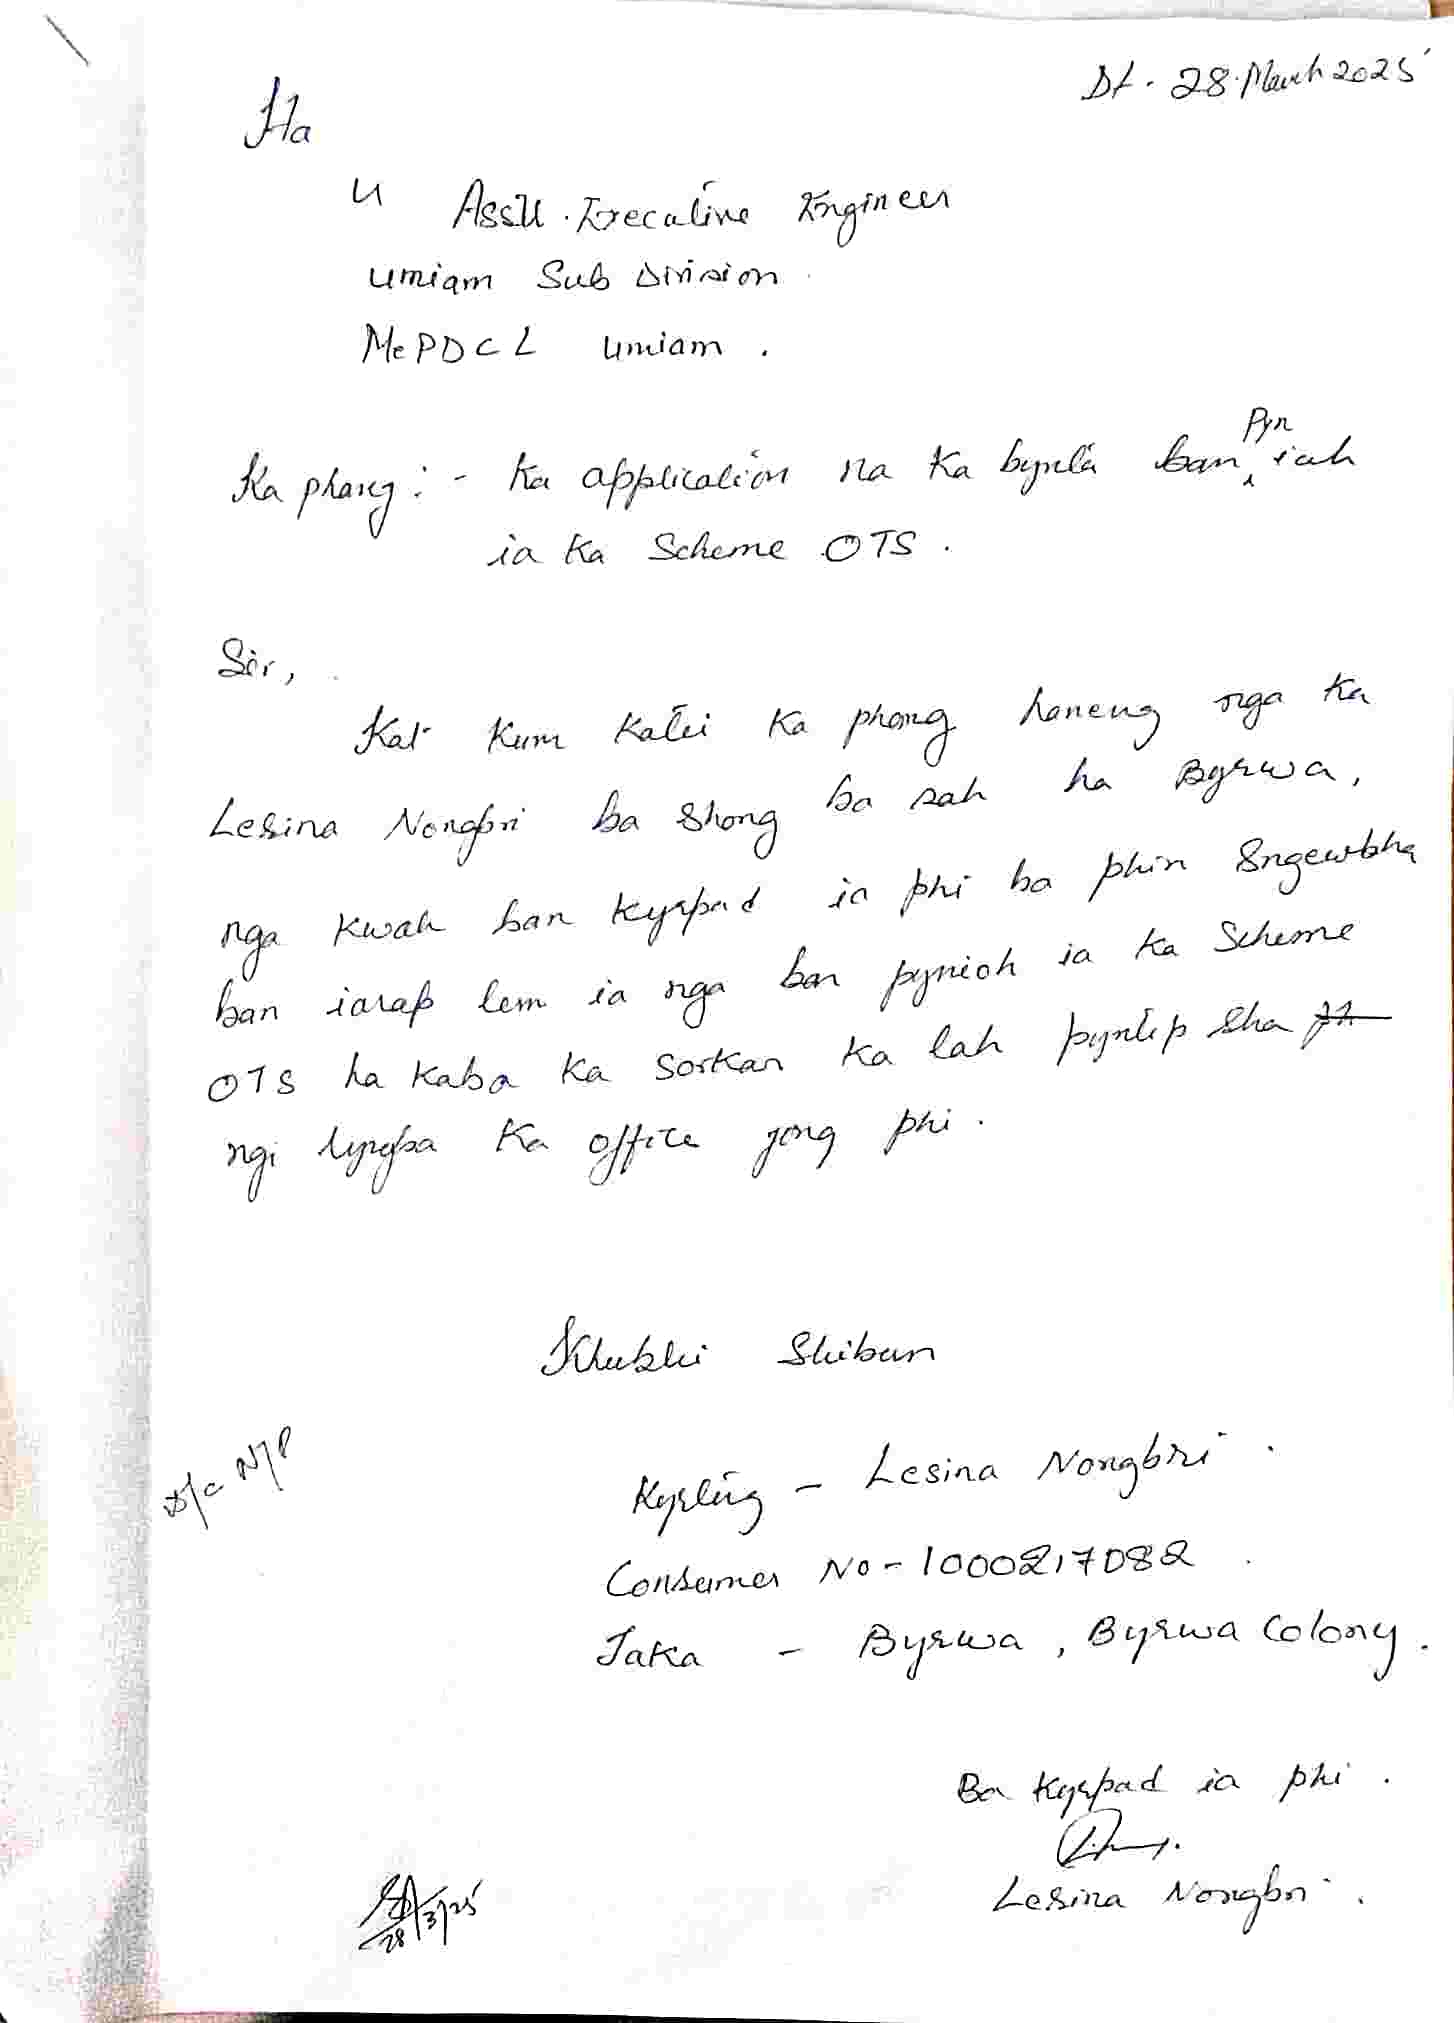 Dt. 28.March 2025
Ha
U Asstt. Executive Engineer
Umiam Sub Division
MePDCL Umiam.
Ka phang:- Ka application na ka bynta ban Pyn iah
ia ka Scheme OTS.
Sir,
Kat kum katei ka phang haneng nga ka
Lesina Nongbri ba shong ba sah ha Byrwa,
nga kwah ban kyrpad ia phi ba phin sngewbha
ban iarap lem ia nga ban pynioh ia ka Scheme
OTS ha kaba ka sorkar ka lah pyntip sha
ngi lyngba ka office jong phi.
Khublei Shibun
Kyrteng - Lesina Nongbri.
Consumer No - 1000217082
Jaka - Byrwa, Byrwa Colony.
Ba kyrpad ia phi.
Lesina Nongbri.
28/3/25